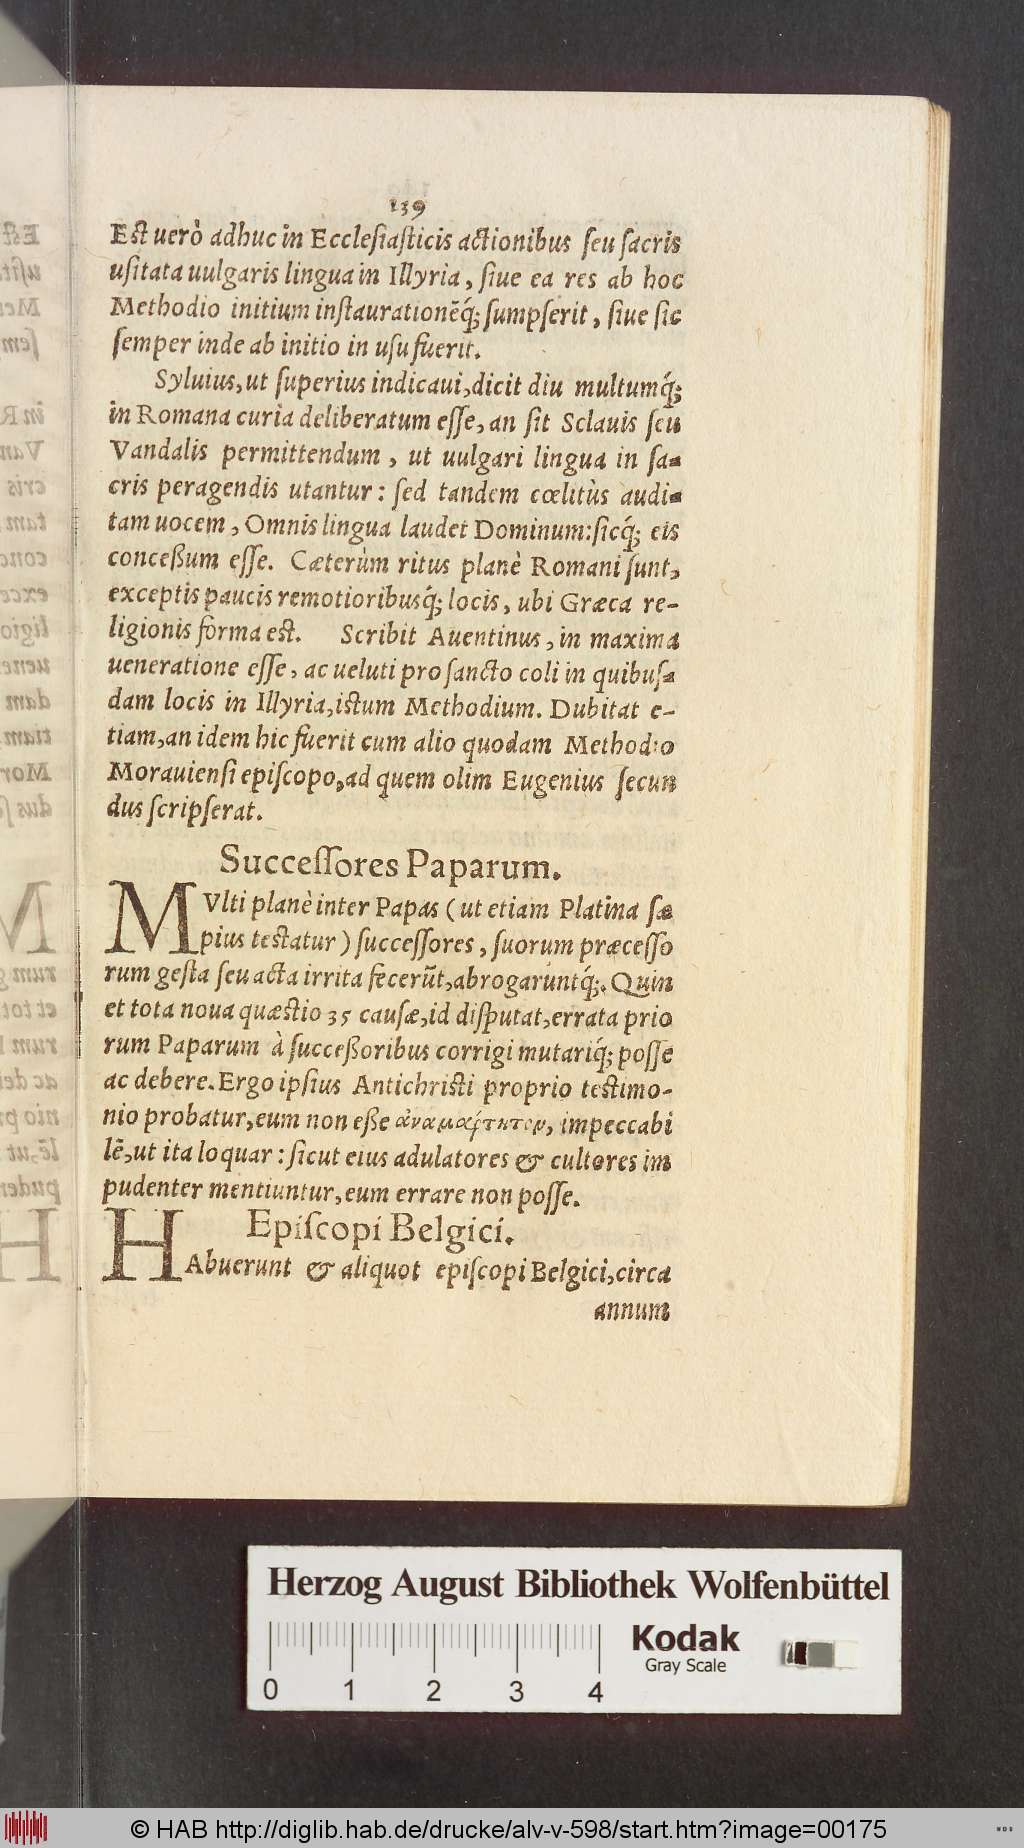 139
Eſt uerò adhuc in Eccleſiaſticis actionibus ſeu ſacris
uſitata uulgaris lingua in Illyria, ſiue ea res ab hoc
Methodio initium inſtaurationẽq́; ſumpſerit, ſiue ſic
ſemper inde ab initio in uſu fuerit.
Syluius, ut ſuperius indicaui, dicit diu multumq́;
in Romana curia deliberatum eſſe, an ſit Sclauis ſeu
Vandalis permittendum, ut uulgari lingua in ſa-
cris peragendis utantur: ſed tandem cœlitùs audi-
tam uocem, Omnis lingua laudet Dominum: ſicq́; eis
conceßum eſſe. Cæterùm ritus planè Romani ſunt,
exceptis paucis remotioribusq́; locis, ubi Græca re-
ligionis forma eſt. Scribit Auentinus, in maxima
ueneratione eſſe, ac ueluti pro ſancto coli in quibuſ-
dam locis in Illyria, iſtum Methodium. Dubitat e-
tiam, an idem hic fuerit cum alio quodam Methodio
Morauienſi epiſcopo, ad quem olim Eugenius ſecun
dus ſcripſerat.
Succeſſores Paparum.
MVlti planè inter Papas (ut etiam Platina ſæ
pius teſtatur) ſucceſſores, ſuorum præceſſo
rum geſta ſeu acta irrita fecerũt, abrogaruntq́;. Quin
et tota noua quæſtio 35 cauſæ, id diſputat, errata prio
rum Paparum à ſucceßoribus corrigi mutariq́; poſſe
ac debere. Ergo ipſius Antichriſti proprio teſtimo-
nio probatur, eum non eße ἀναμάρτητον, impeccabi
lẽ, ut ita loquar: ſicut eius adulatores & cultores im
pudenter mentiuntur, eum errare non poſſe.
Epiſcopi Belgici.
HAbuerunt & aliquot epiſcopi Belgici, circa
annum
Herzog August Bibliothek Wolfenbüttel
Kodak
Gray Scale
0 1 2 3 4
© HAB http://diglib.hab.de/drucke/alv-v-598/start.htm?image=00175